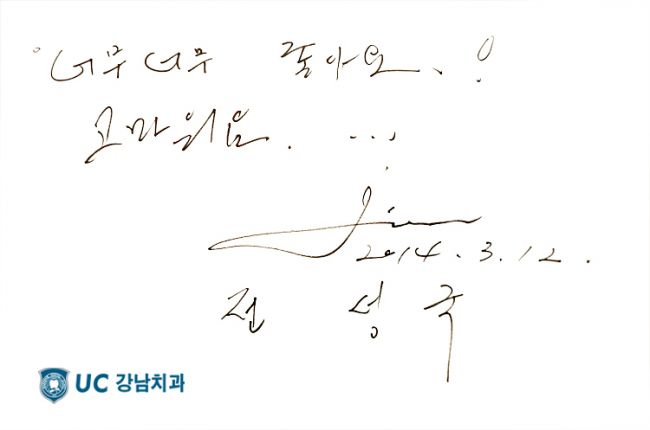 너무너무 좋아요!
고마워요. ...
2014.3.12.
전 성 국
UC 강남치과